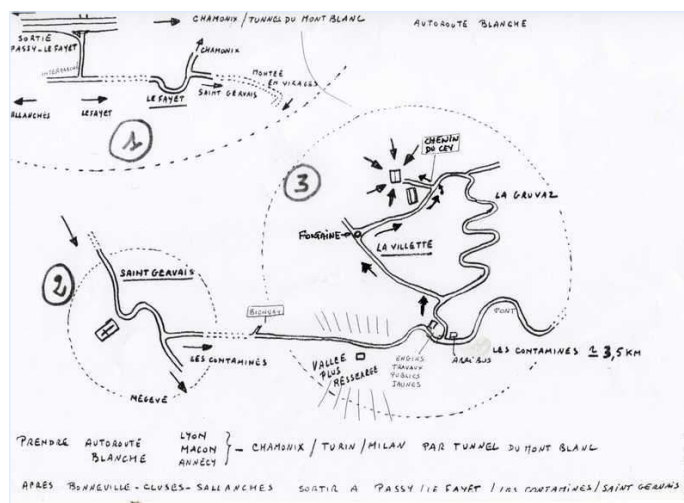 → CHAMONIX / TUNNEL DU MONT BLANC
AUTOROUTE BLANCHE
SORTIE
PASSY-LE FAYET
CHAMONIX
INTERMARCHE
MONTÉE
EN VIRAGES
LE FAYET
SAINT GERVAIS
SALLANCHES
LE FAYET
1
CHEMIN
DU CEY
3
LA GRUVAZ
FONTAINE
LA VILLETTE
SAINT GERVAIS
2
BIONNAY
PONT
LES CONTAMINES
VALLÉE
PLUS
RESSERRÉE
ENGINS
TRAVAUX
PUBLICS
JAUNES
ABRI BUS
LES CONTAMINES ± 3,5 KM
MEGÈVE
PRENDRE AUTOROUTE BLANCHE
LYON
MACON
ANNECY
} - CHAMONIX / TURIN / MILAN PAR TUNNEL DU MONT BLANC
APRÈS BONNEVILLE-CLUSES-SALLANCHES SORTIR A PASSY / LE FAYET / LES CONTAMINES / SAINT GERVAIS